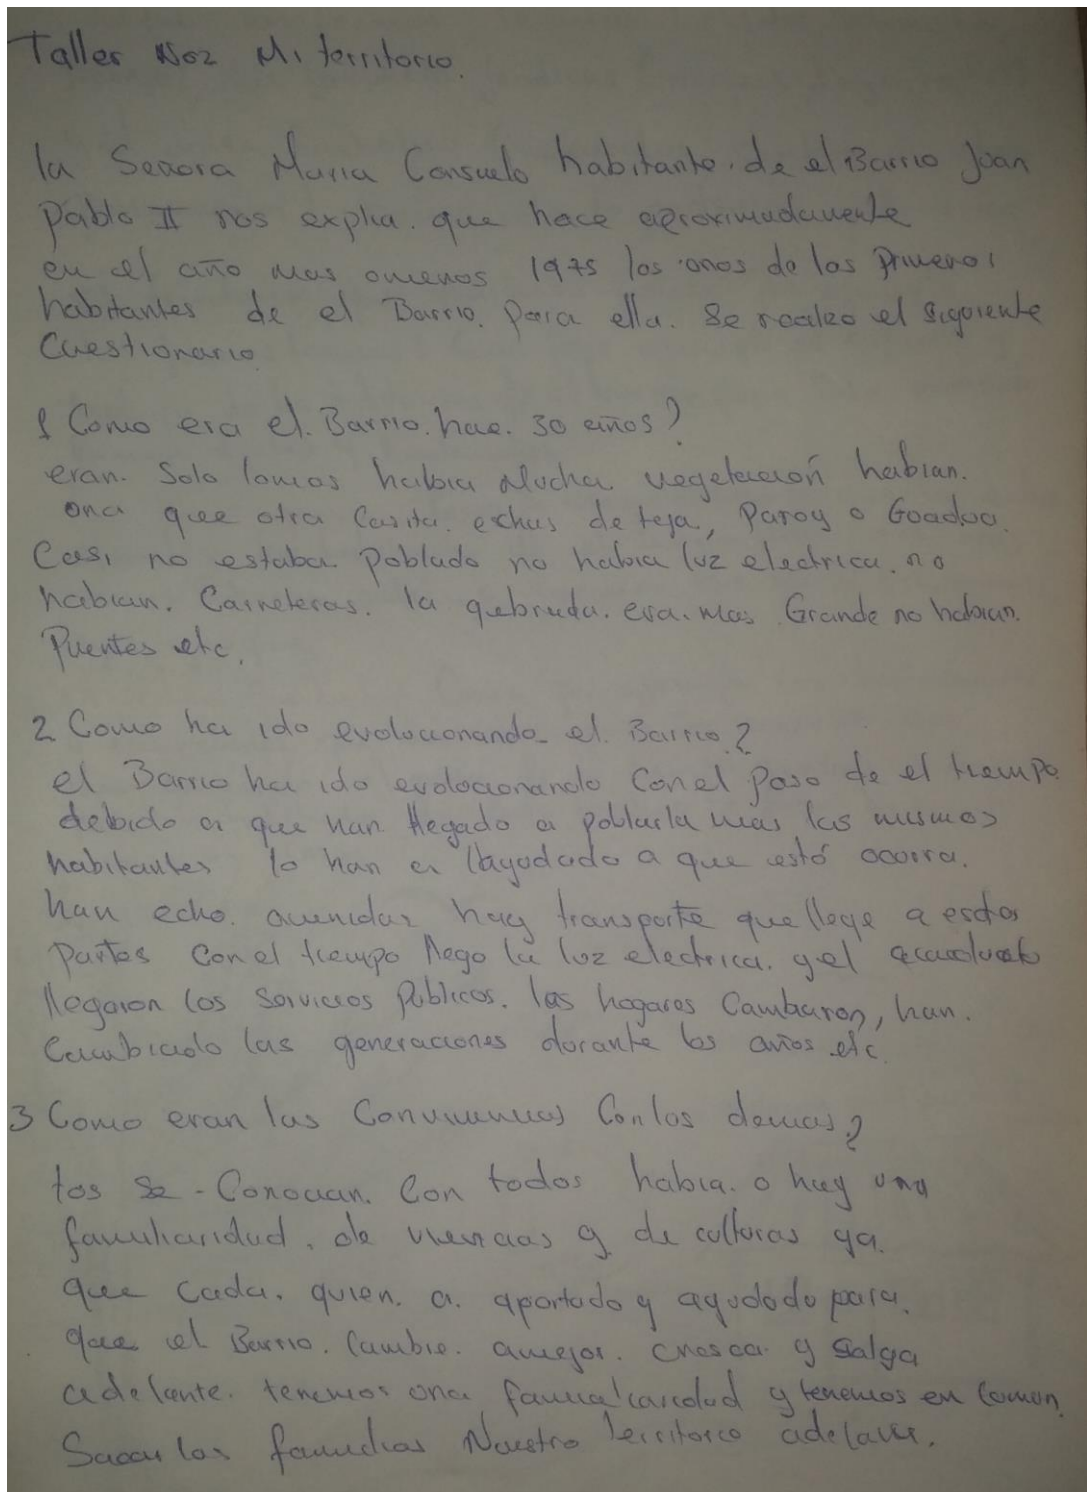 Taller No2 Mi territorio.
la Señora Maria Consuelo habitante. de el Barrio Juan
Pablo II nos explia. que hace aproximadamente
en el año mas omenos 1975 los onos de los Primeros
habitantes de el Barrio. Para ella. Se realizo el siguiente
Cuestionario
1 Como era el. Barrio. hace. 30 años?
eran. Solo lomas habia Mucha vegetación habian.
ona que otra Casita. echas de teja, Paroy o Guadua.
Casi no estaba Poblado no habia luz electrica. no
habian. Carreteras. la quebrada. era. mas Grande no habian.
Puentes etc.
2 Como ha ido evolucionando el. Barrio?
el Barrio ha ido evolucionando Con el Paso de el tiempo
debido a que han llegado a poblarla mas los mismos
habitantes lo han a ayudado a que estó ocurra.
han echo. avenidas hay transporte que llege a estas
Partes Con el tiempo llego la luz electrica. y el acueducto
llegaron los Servicios Publicos. los hogares Cambiaron, han.
Cambiado las generaciones durante los años etc.
3 Como eran las Convivencias Con los demas?
tos se - Conocian. Con todos habia. o hay una
familiaridad. de vivencias y de culturas ya.
que cada. quien. a. aportado y ayudado para.
que el Barrio. Cambie. amejor. cresca y salga
adelante. tenemos una familiaridad y tenemos en Comun.
Sacar las familias Nuestro territorio adelante.